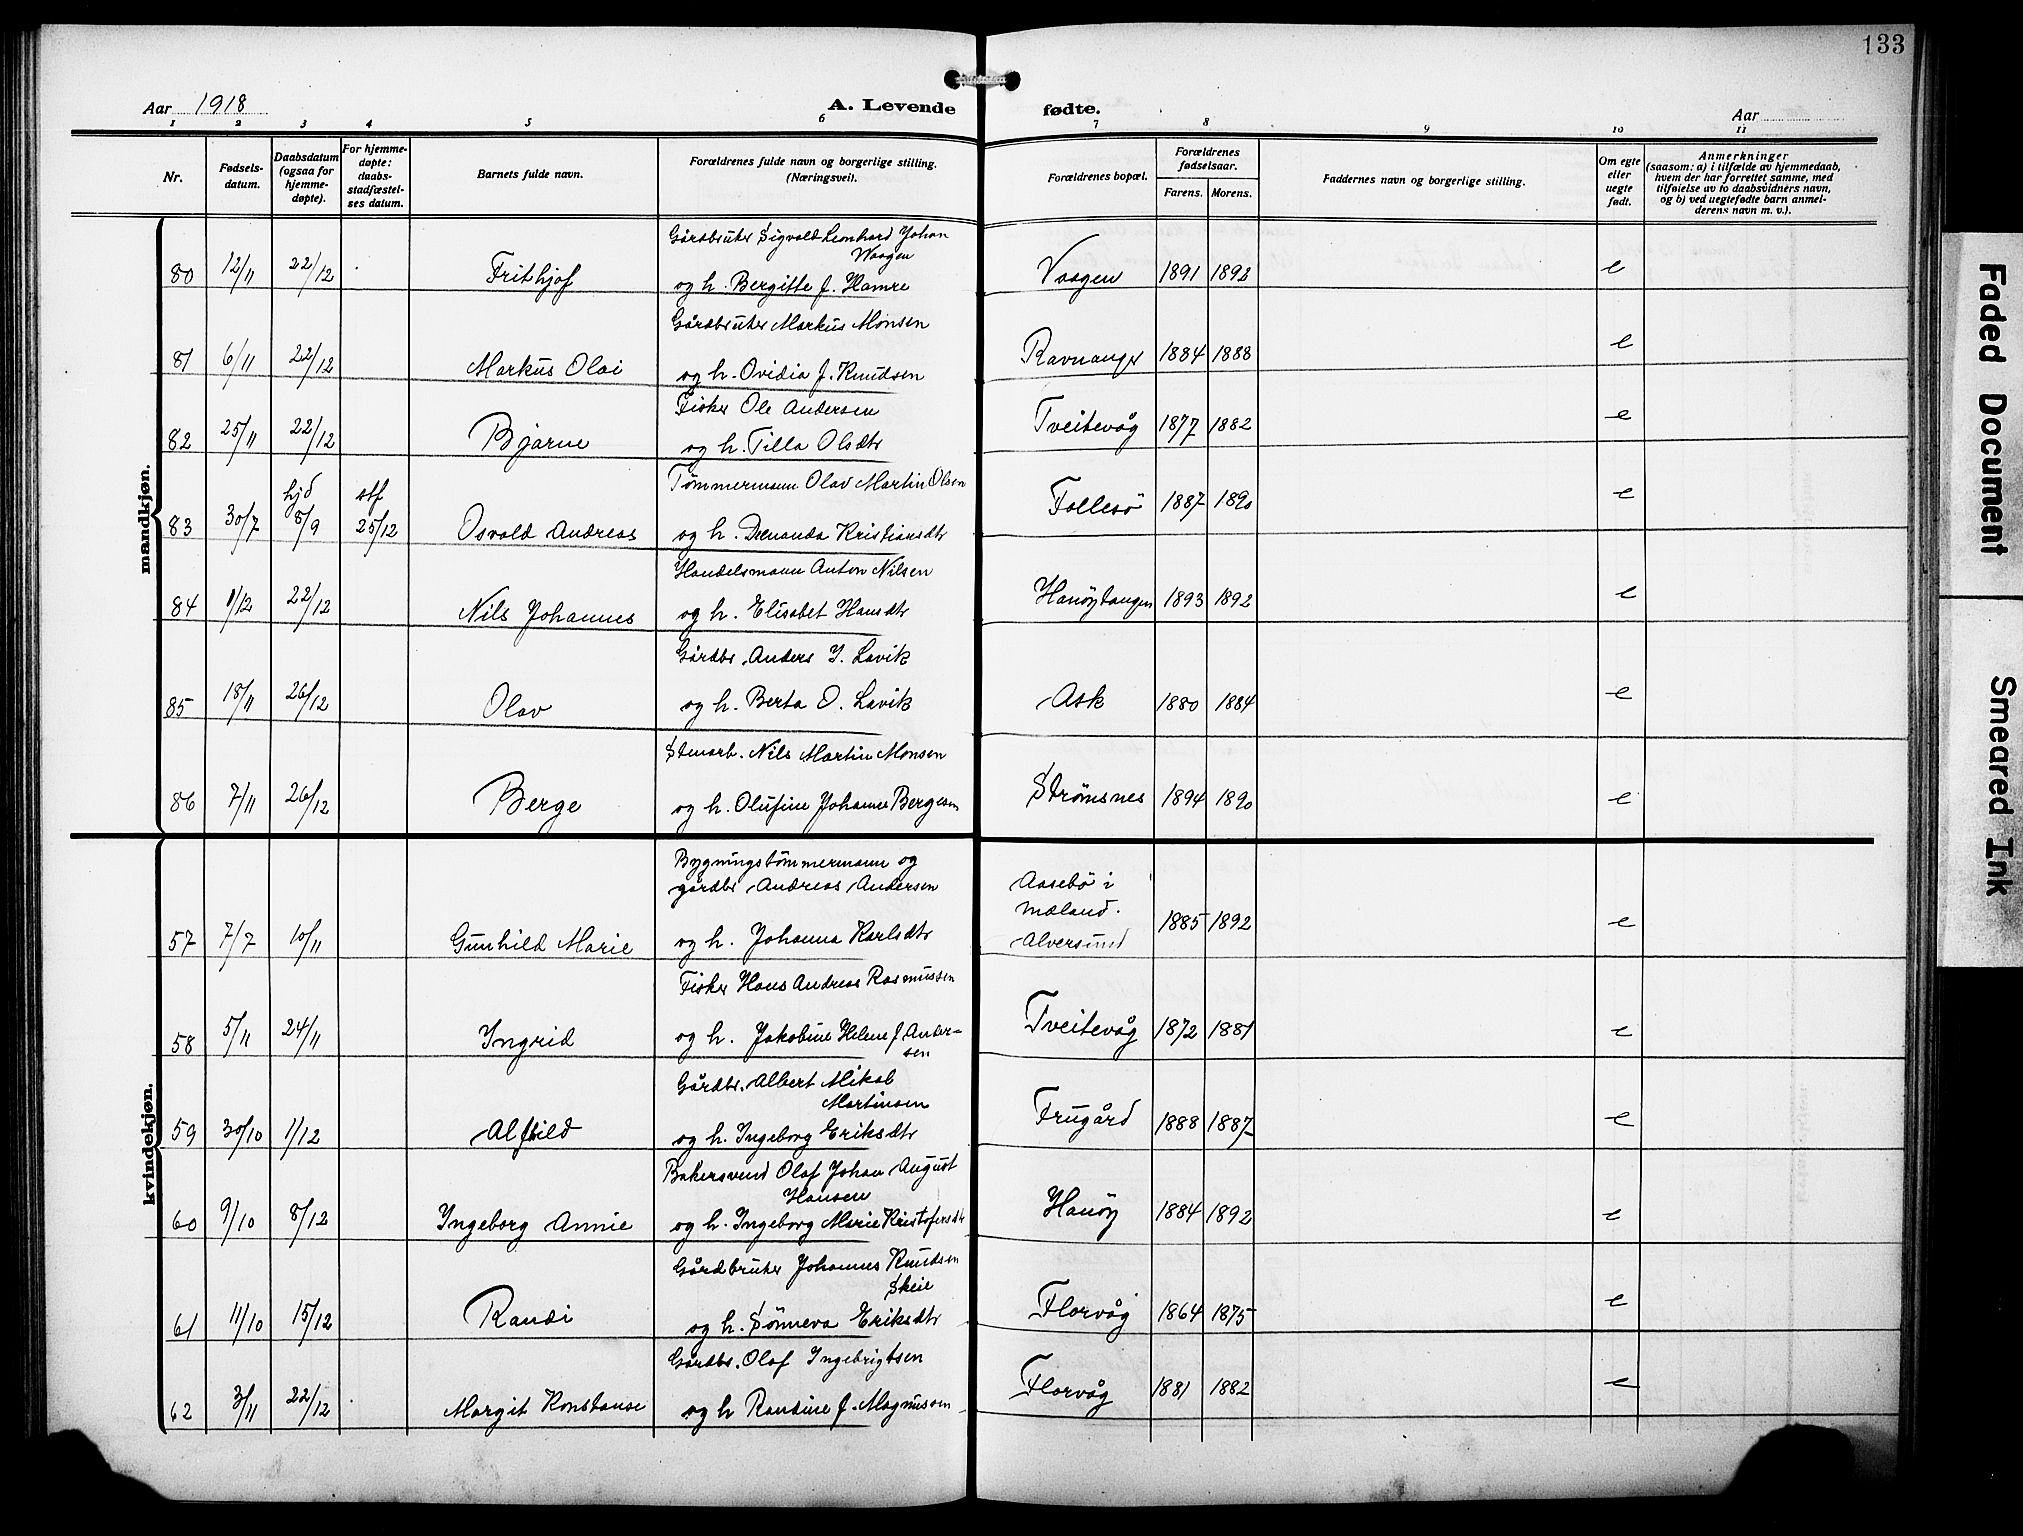 133
Aar 1918
A. Levende fødte.
Aar
1 2 3 4 5 6 7 8 9 10 11
Nr.
Fødsels-
datum.
Daabsdatum
(ogsaa for
hjemme-
døpte).
For hjemme-
døpte:
daabs-
stadfæstel-
ses datum.
Barnets fulde navn.
Forældrenes fulde navn og borgerlige stilling.
(Næringsveil.
Forældrenes bopæl.
Forældrenes
fødselsaar.
Farens. Morens.
Faddernes navn og borgerlige stilling.
Om egte
eller
uegte
født.
Anmerkninger
(saasom: a) i tilfælde av hjemmedaab,
hvem der har forrettet samme, med
tilføielse av to daabsvidners navn,
og b) ved uegtefødte barn anmel-
derens navn m. v.).
mandkjøn.
Gårdbruker Sigvald Leonhard Johan
Waagen
80 12/11 22/12 Frithjof og h. Bergitte f. Hamre Vaagen 1891 1892 e
Gårdbruker Markus Monsen
81 6/11 22/12 Markus Olai og h. Ovidia f. Knudsen Ravnanger 1884 1888 e
Fisker Ole Andersen
82 25/11 22/12 Bjarne og h. Tilla Olsdtr Tveitevåg 1877 1882 e
Tømmermann Olav Martin Olsen
83 30/7 hjd 8/9 stf 25/12 Osvald Andreas og h. Kristiansdtr Follesö 1887 1890 e
Handelsmann Anton Nilsen
84 1/12 22/12 Nils Johannes og h. Elisabet Hansdtr Hanøytangen 1893 1892 e
Gårdbr. Anders J. Lavik
85 18/11 26/12 Olav og h. Berta O. Lavik Ask 1880 1884 e
Stenarb. Nils Martin Monsen
86 7/11 26/12 Berge og h. Olufine Johanne Bergesen Strømsnes 1894 1890 e
kvindekjøn.
Bygningstømmermann og
gårdbr Andreas Andersen
57 7/7 10/11 Gunhild Marie og h. Johanna Karlsdtr Aasebö i
Mæland.
Alversund 1885 1892 e
Fisker Hans Andreas Rasmussen
58 5/11 24/11 Ingrid og h. Jakobine Helene f. Ander-
sen Tveitevåg 1872 1881 e
Gårdbr. Albert Mikal
Martinsen
59 30/10 1/12 Alfhild og h. Ingeborg Eriksdtr Frugård 1888 1887 e
Bakersvend Olaf Johan August
Hansen
60 9/10 8/12 Ingeborg Annie og h. Ingeborg Marie Kristofersdtr Hanöy 1884 1892 e
Gårdbruker Johannes Knudsen
Skeie
61 11/10 15/12 Randi og h. Sønneva Eriksdtr Florvåg 1864 1875 e
Gårdbr. Olaf Ingebrigtsen
62 3/11 22/12 Margit Konstanse og h Randine f. Magnussen Florvåg 1881 1882 e
Faded Document
Smeared Ink